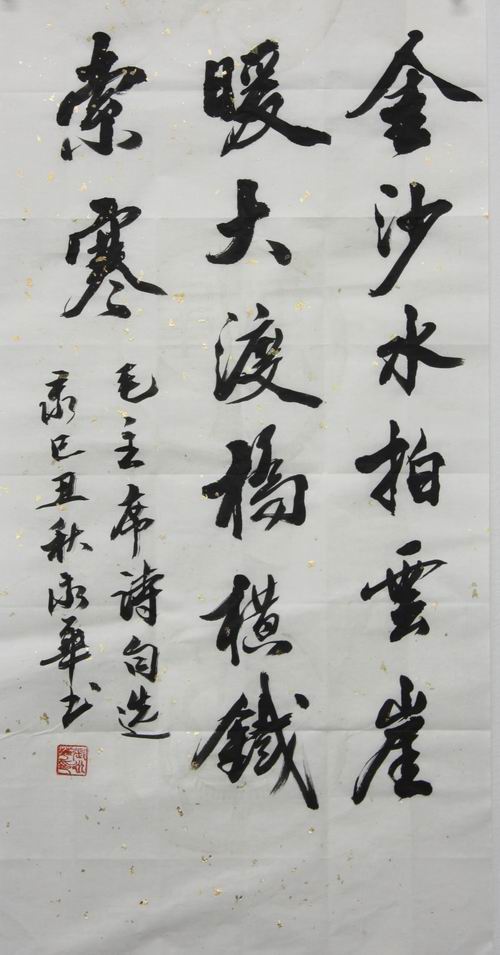 金沙水拍雲崖
暖大渡橋橫鐵
索寒
毛主席詩句選
己丑秋永華书